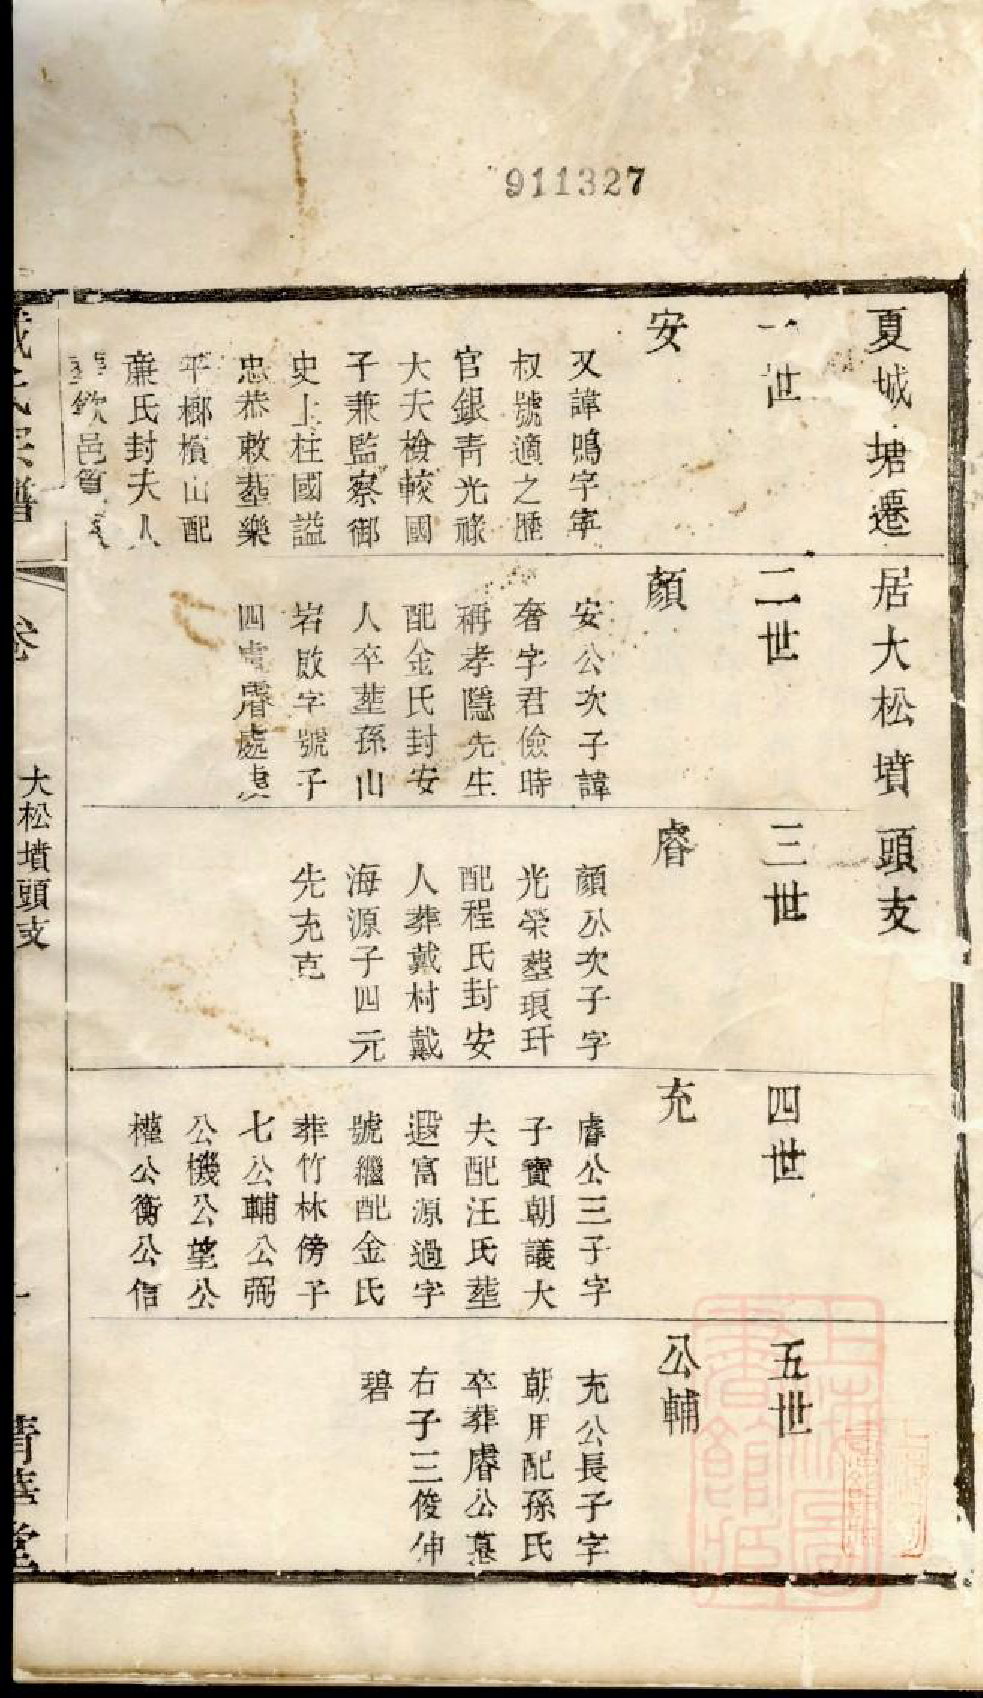 911327
夏城塘遷居大松墳頭支
一世
安
又諱鳴字寧
叔號適之歷
官銀青光祿
大夫檢較國
子兼監察御
史上柱國諡
忠恭敕塟樂
平櫛檟山配
亷氏封夫人
葬欽邑篁
二世
顏
安公次子諱
奢字君儉時
稱孝隱先生
配金氏封安
人卒塟孫山
岩啟字號子
四虔睿處虔
三世
睿
顏公次子字
光榮塟琅玕
配程氏封安
人葬戴村戴
海源子四元
先充克
四世
充
睿公三子字
子實朝議大
夫配汪氏塟
遐富源過字
號繼配金氏
葬竹林傍子
七公輔公弼
公機公望公
權公衡公信
五世
公輔
充公長子字
朝用配孫氏
卒葬睿公墓
右子三俊伸
碧
氏宗譜
卷
大松墳頭支
一
清華堂
上海圖書館藏